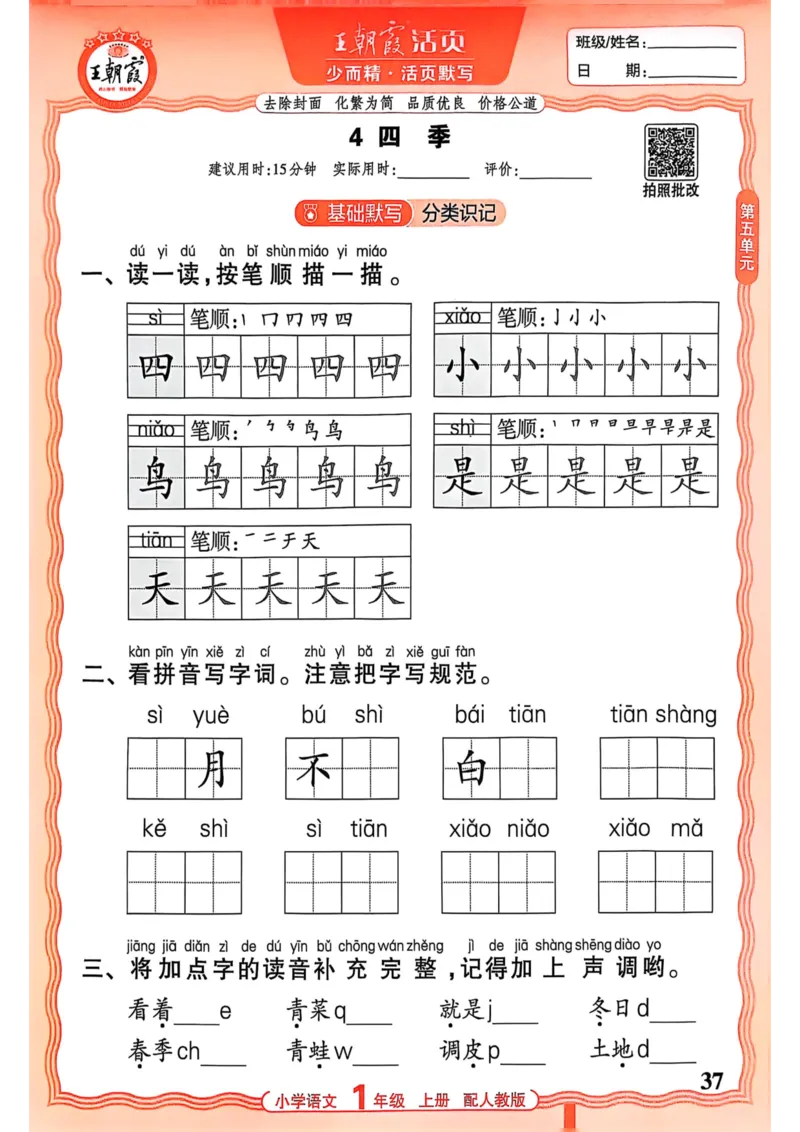 王朝霞
王朝霞活页
少而精·活页默写
班级/姓名:
日 期:
去除封面 化繁为简 品质优良 价格公道
4 四 季
建议用时:15分钟 实际用时: 评价:
拍照批改
基础默写 分类识记
第五单元
dú yi dú àn bǐ shùn miáo yi miáo
一、读一读,按笔顺描一描。
sì 笔顺:丨 冂 四 四
四 四 四 四 四
xiǎo 笔顺:亅 小 小
小 小 小 小 小
niǎo 笔顺: 鸟 鸟
鸟 鸟 鸟 鸟 鸟
shì 笔顺:丨 冂 日 日 旦 早 早 是 是
是 是 是 是 是
tiān 笔顺:一 二 于 天
天 天 天 天 天
kàn pīn yīn xiě zì cí zhù yì bǎ zì xiě guī fàn
二、看拼音写字词。注意把字写规范。
sì yuè bú shì bái tiān tiān shàng
月 不 白
kě shì sì tiān xiǎo niǎo xiǎo mǎ
jiāng jiā diǎn zì de dú yīn bǔ chōng wán zhěng jì de jiā shàng shēng diào yo
三、将加点字的读音补充完整,记得加上声调哟。
看着____e 青菜q____ 就是j____ 冬日d____
春季ch____ 青蛙w____ 调皮p____ 土地d____
37
小学语文 1年级 上册 配人教版